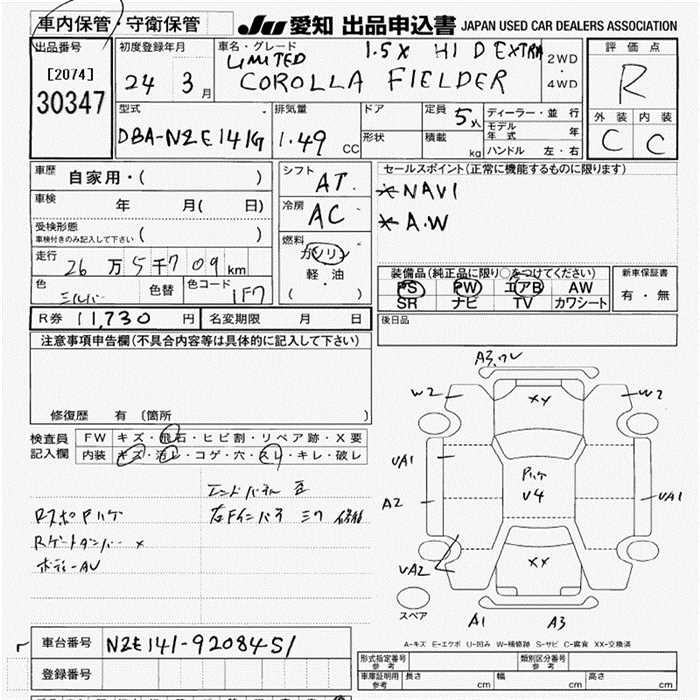 車内保管・守衛保管 JU 愛知 出品申込書 JAPAN USED CAR DEALERS ASSOCIATION
出品番号 初度登録年月 車名・グレード 評価点
[2074] 30347
24 3月
LIMITED 1.5X HID EXTRA
COROLLA FIELDER
2WD・4WD
R
外装 内装
C C
型式 排気量 ドア 定員 5人 ディーラー・並行
DBA-NZE141G 1.49 CC 形状 積載 kg
モデル年式 年
ハンドル 左・右
車歴 自家用・( )
車検 年 月( 日)
受検形態 車検付きのみ記入して下さい ( )
走行 26万5千709km
色 シルバー 色替 色コード 1F7
シフト AT
冷房 AC
燃料 ガソリン
軽・油
( )
セールスポイント(正常に機能するものに限ります)
*NAVI
*A.W
装備品(純正品に限り○をつけてください)
PS PW エアB AW
SR ナビ TV カワシート
新車保証書
有・無
R券 11,730円 名変期限 月 日
後日品
注意事項申告欄(不具合内容等は具体的に記入して下さい)
修復歴 有〔箇所 〕
検査員記入欄
FW キズ・飛石・ヒビ割・リペア跡・X要
内装 キズ・汚レ・コゲ・穴・スレ・キレ・破レ
RスポPハゲ
Rゲートダンパー ×
ボディーAU
右Fインパネ
A3.ワレ
W2 XY W2
UA1
A2
Pハゲ
U4
UA1
UA2
XX
A1 A3
スペア
A-キズ E-エクボ U-凹み W-補修跡 S-サビ C-腐食 XX-交換済
車台番号 NZE141-9208451
登録番号
形式指定番号 参考 類別区分番号 参考
車庫証明用 参考 長さ cm 幅 cm 高さ cm